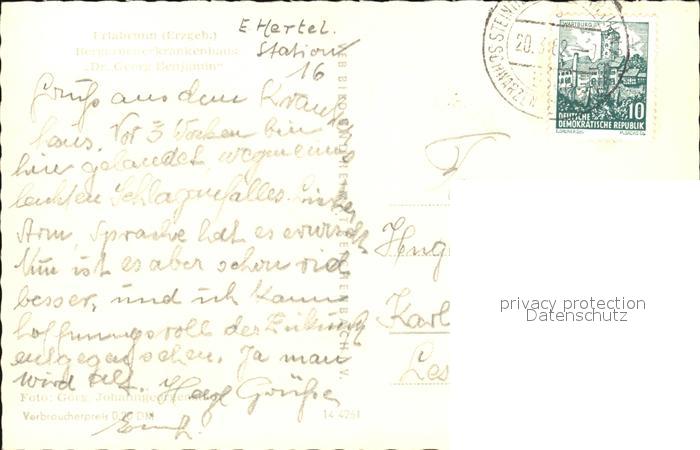 E Hertel.
Station
16
Erlabrunn (Erzgeb.)
Bergarbeiterkrankenhaus
„Dr. Georg Benjamin“
Gruß aus dem Kranken
haus. Vor 3 Wochen bin
hier gelandet, wegen eines
leichten Schlaganfalles.
Arm, Sprache hat es erwischt
Nun ist es aber schon viel
besser, und ich kann
hoffnungsvoll der Zukunft
entgegen sehen. Ja man
wird alt. Herzl Grüße
Foto: Görg, Johanngeorgenstadt
Verbraucherpreis 0,20 DM
14 4261
WARTBURG
20.3.62
SCHWARZEN
10
DEUTSCHE
DEMOKRATISCHE REPUBLIK
Hug
Karl
privacy protection
Datenschutz